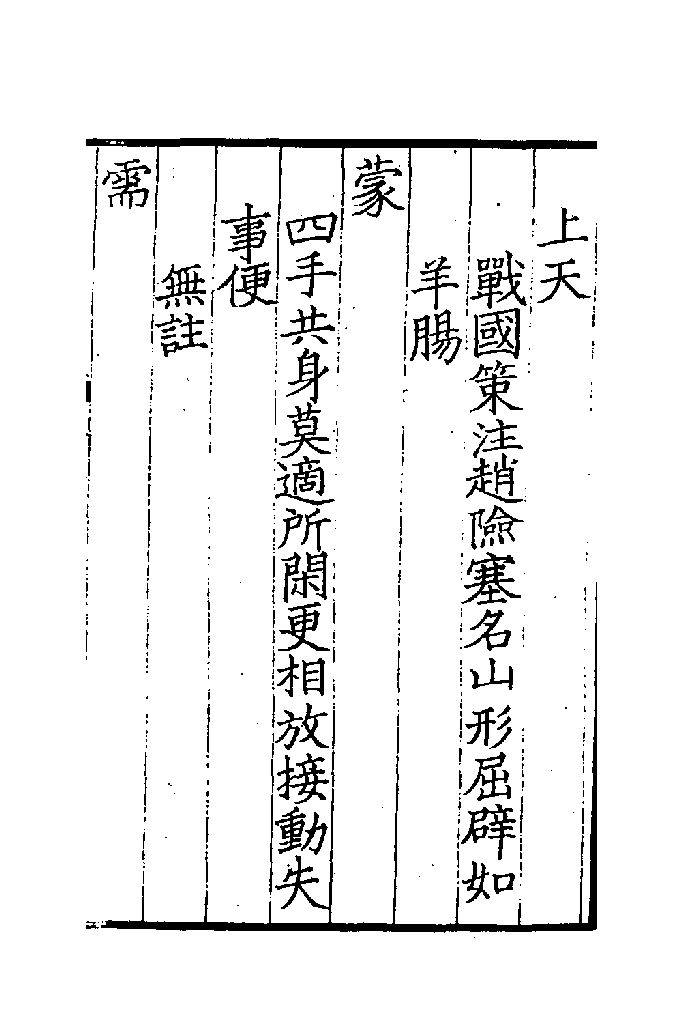 上天
戰國策注趙險塞名山形屈辟如
羊腸
蒙
四手共身莫適所閑更相放接動失
事便
無註
需